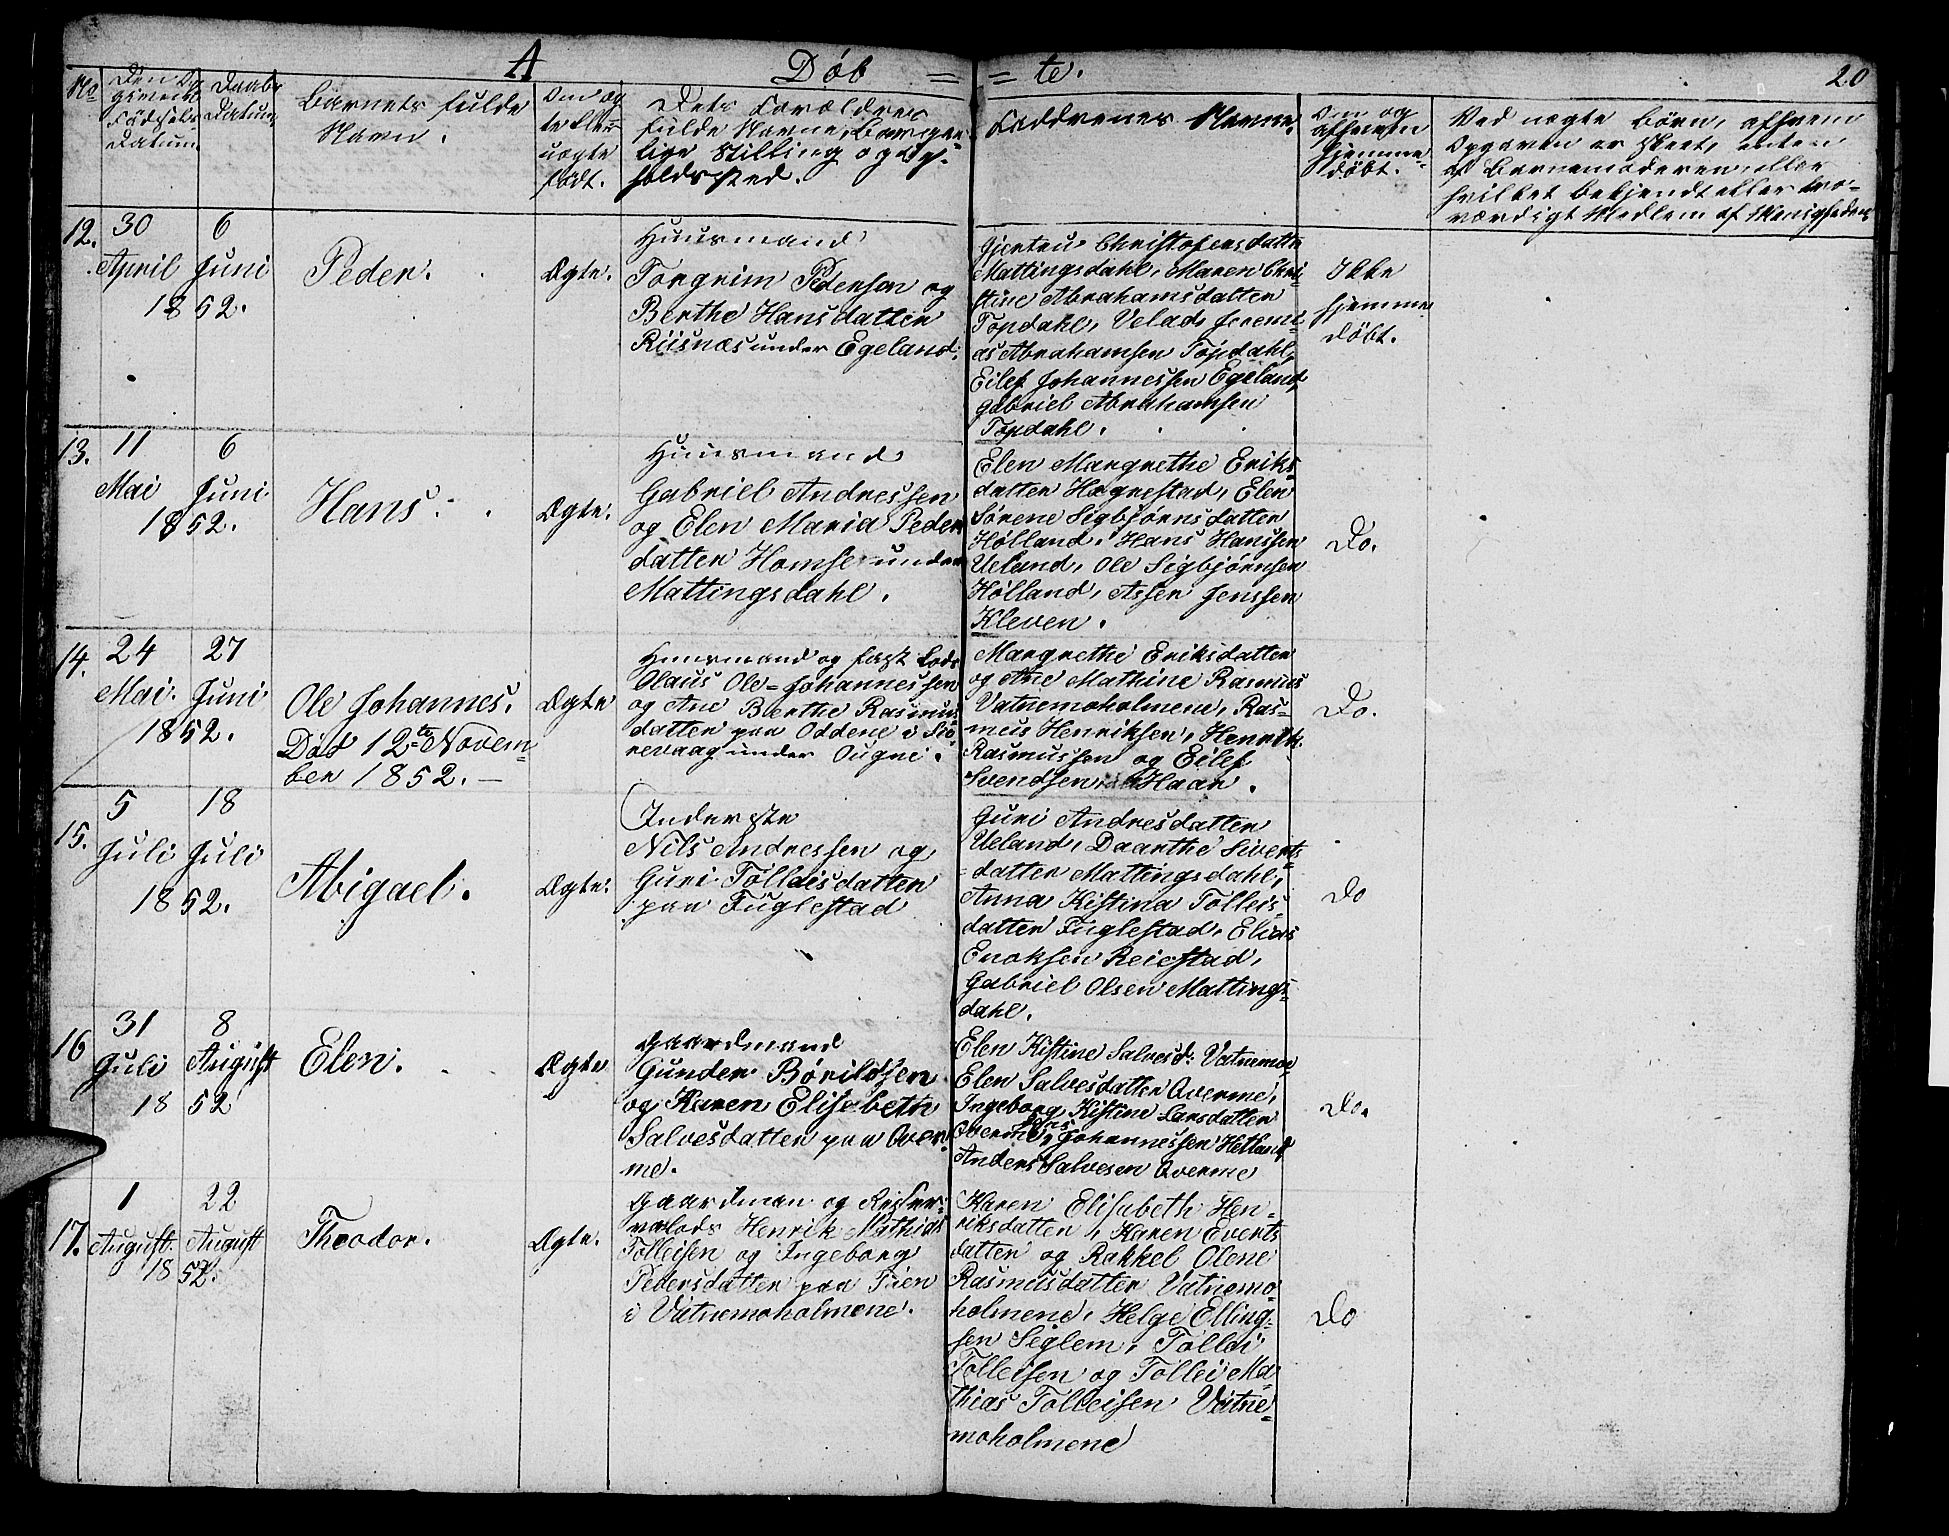 A
Døb = = te.
20
No
Den op
givne
Fødsels
Datum.
Daabs
Datum
Barnets fulde
Navn.
Om æg
te eller
uægte
født.
Dets Forældres
fulde Navne, borger-
lige Stilling og Op-
holdssted.
Faddrenes Navne.
Om og
hjemme-
døbt.
Ved uægte Børn, afhvem
Opgaven er skeet, enten
af Barnemoderen, eller
hvilket bekjendt eller tro-
værdigt Medlem af Menigheden
12.
30
April
6
Juni
1852.
Peder.
Ægte.
Huusmand
Torgrim Pedersen og
Berthe Hansdatter
Riisnæs under Egeland.
Gjertru Christofersdatter
Mattingsdahl, Maren Chri-
stine Abrahamsdatter
Topdahl, Velad. Jeremi-
as Abrahamsen Topdahl,
Eilef Johannessen Egeland,
Gabriel Abrahamsen
Topdahl.
Ikke
hjemme
døbt.
13.
11
Mai
6
Juni
1852.
Hans.
Ægte.
Huusmand
Gabriel Andressen
og Elen Maria Peder
datter Homse under
Mattingsdahl.
Elen Margrethe Eriks-
datter Hægrestad, Elen
Sørene Sigbjørnsdatter
Hølland, Hans Hanssen
Ueland, Ole Sigbjørnsen
Hølland, Asser Jenssen
Kleven.
Do.
14.
24
Mai.
27
Juni
1852.
Ole Johannes.
Død 12te Novem-
ber 1852. —
Ægte
Huusmand og fast Lods
Olaus Ole-Johannessen
og Ane Berthe Rasmus
datter paa Oddene i Si-
revaag under Ougne.
Margrethe Eriksdatter
og Ane Mathine Rasmus
Vatnemoholmene, Ras-
mus Henriksen, Henrik
Rasmussen og Eilef
Svendsen Haar.
Do.
15.
5
Juli
18
Juli
1852.
Abigael.
Ægte.
Inderste
Nils Andressen og
Guri Tolleisdatter
paa Fuglestad
Guri Andresdatter
Ueland, Daarthe Siverts-
datter Mattingsdahl,
Anna Kistina Tolleis-
datter Fuglestad, Elias
Enoksen Reiestad,
Gabriel Olsen Mattings-
dahl.
Do
16
31
Juli
8
August
1852
Elen.
Ægte
Gaardmand
Gunder Børildsen
og Karen Elisabeth
Salvesdatter paa Over-
me.
Elen Kistine Salvesd: Vatnemoe,
Elen Salvesdatter Overme,
Ingeborg Kistine Larsdatter
Overme, Johannessen Hetland
Anders Salvesen Overme
Do.
17.
1
August.
22
August
1852.
Theodor.
Ægte.
Gaardman og Reser-
velods Henrik Mathias
Tolleisen og Ingeborg
Pedersdatter paa Tuen
i Vatnemoholmene.
Karen Elisabeth Hen-
riksdatter, Karen Everts
datter og Rakkel Olene
Rasmusdatter Vatnemo-
holmene, Helge Elling-
sen Seglem, Tollai
Tolleisen og Tollei Ma-
thias Tolleisen Vatne-
moholmene
Do